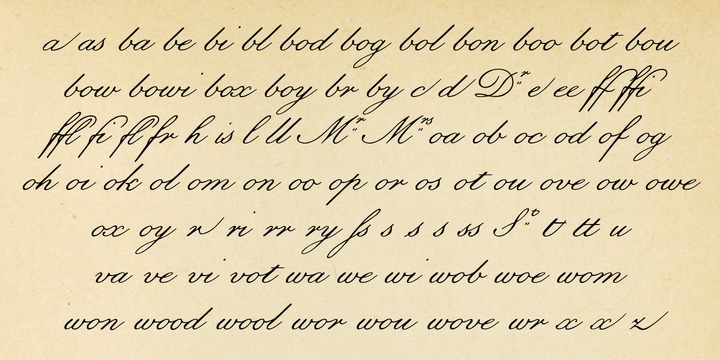 a as ba be bi bl bod bog bol bon boo bot bou
bow bowi box boy br by c d Dr e ee ff ffi
ffl fi fl fr h is l ll Mr Mrs oa ob oc od of og
oh oi ok ol om on oo op or os ot ou ove ow owe
ox oy r ri rr ry ſs s s s s ss St t tt u
va ve vi vot wa we wi wob woe wom
won wood wool wor wou wove wr x x z